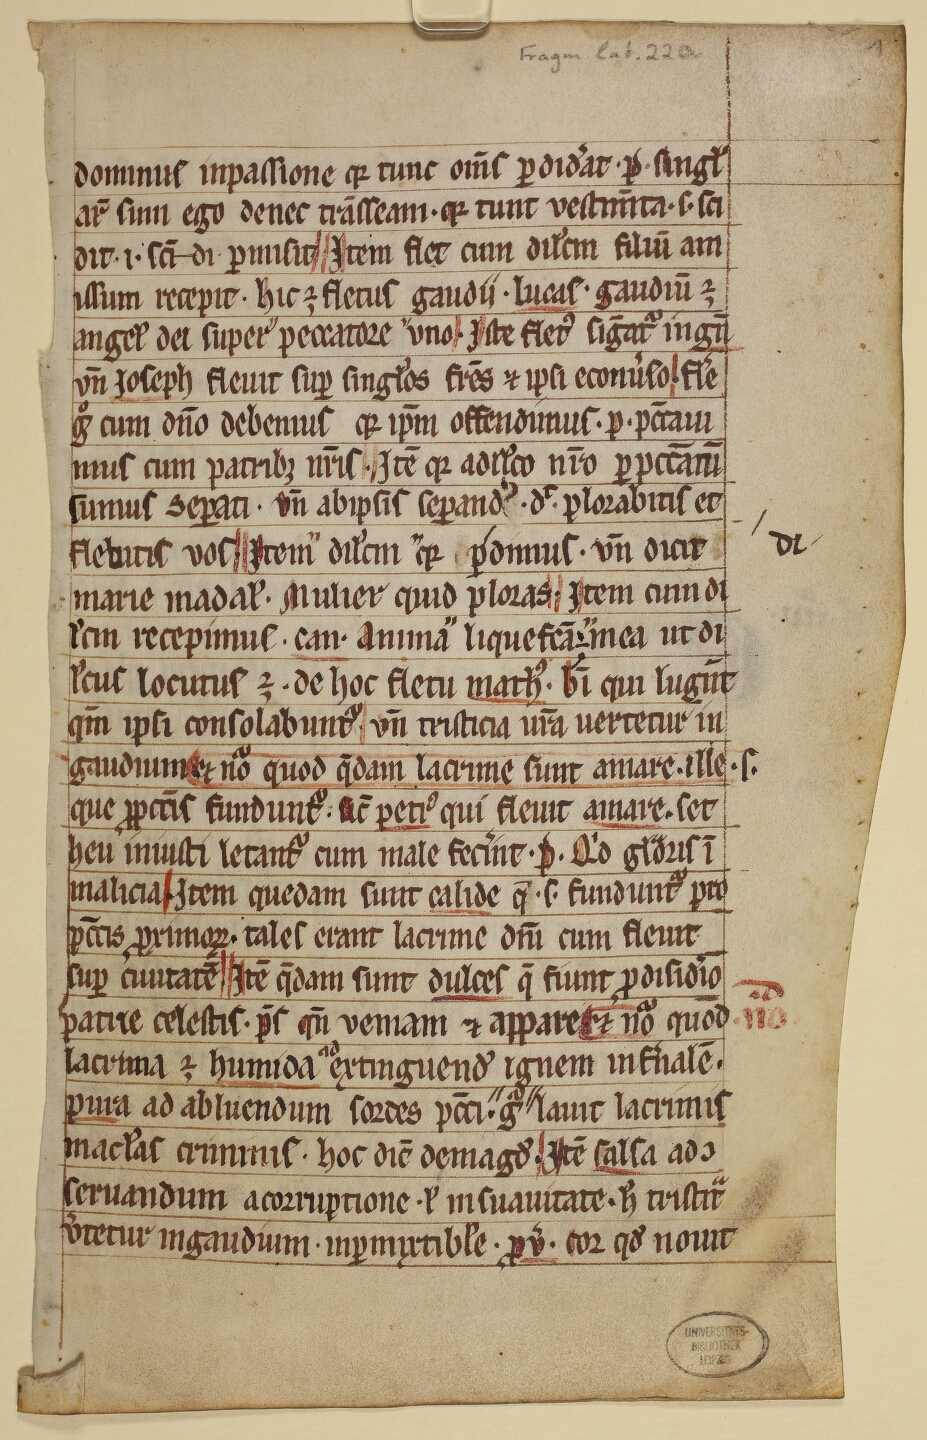 Fragm. lat. 220
1
dominus inpassione qr tunc om̄s ꝑdid᷑at · p̄ · singl᷑
ar᷑ sum ego denec trāsseam · qr tunt vestim̄ta · s· sci
dit · i· sci · di ꝑmisit Item flet cum dilc̄m filiū am
issum recepit · hic ꝫ fletus gaudii · lucas · gaudiū ꝫ
angel᷑ dei super peccatore uno Iste flet᷑ sig̅at᷑ in gn̄
vn̄ Ioseph fleuit suꝑ singl᷑os frēs ⁊ ipsi econu᷑so fle᷑
g° cum dn̄o debemus qr ip̄m offendimus · p· pc̄taui
mus cum patribꝫ nr̄is Itē qr adil᷑co nr̄o ꝑ pctatū
sumus seꝑati · vn̄ abipsis seꝑand᷑ · d᷑ · plorabitis et
flebitis vos Item dil᷑cm qr ꝑdimus · vn̄ dicit
di
marie madal᷑ · Mulier quid ploras Item cum di
l᷑cm recepimus · can · Anima liquefc̄a mea ut di
l᷑cus locutus ꝫ · de hoc fletu math᷑ · bi̅ qui lugūt
qm̄ ipsi consolabunt᷑ vn̄ tristicia ur̄a uertetur in
gaudium et nō quod q̄dam lacrime sunt amare · ille · s·
que ꝓ pctīs fundunt᷑ · peti° qui fleuit amare · set
heu iniusti letant᷑ cum male fec᷑int · p̄ · Q᷑d gl᷑oris ī
malicia Item quedam sunt calide q̄ · s· fundunt᷑ pro
pctīs ꝓximoꝝ · tales erant lacrime dn̄i cum fleuit
suꝑ ciuitatē Itē q̄dam sunt dulces q̄ fiunt ꝓ disid᷑io
patrie celestis · p̄s qn̄ veniam ⁊ appare et nō quod
nō
lacrima ꝫ humida ad extinguend᷑ ignem inf᷑nalē ·
pura ad abluendum sordes pcc̄i · g᷑ lauit lacrimis
macl᷑as criminis · hoc dic̄ demagd᷑ · Itē salsa ad ↄ
seruandum a corruptione · l᷑ insuauitate · h̄ tristit᷑
v᷑tetur ingaudium · inꝑmixtible · ꝓv̄ · cor qd᷑ nouit
UNIVERSITÄTS-
BIBLIOTHEK
LEIPZIG